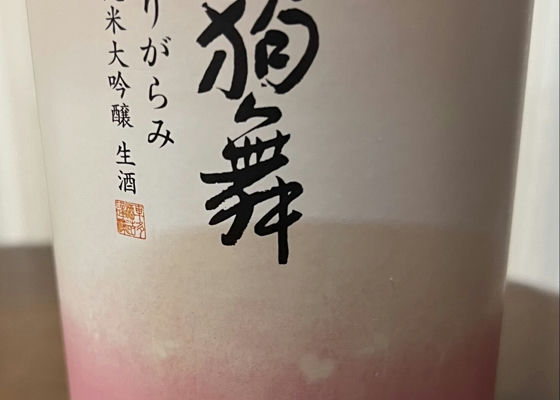 狗舞
りがらみ
米大吟醸 生酒